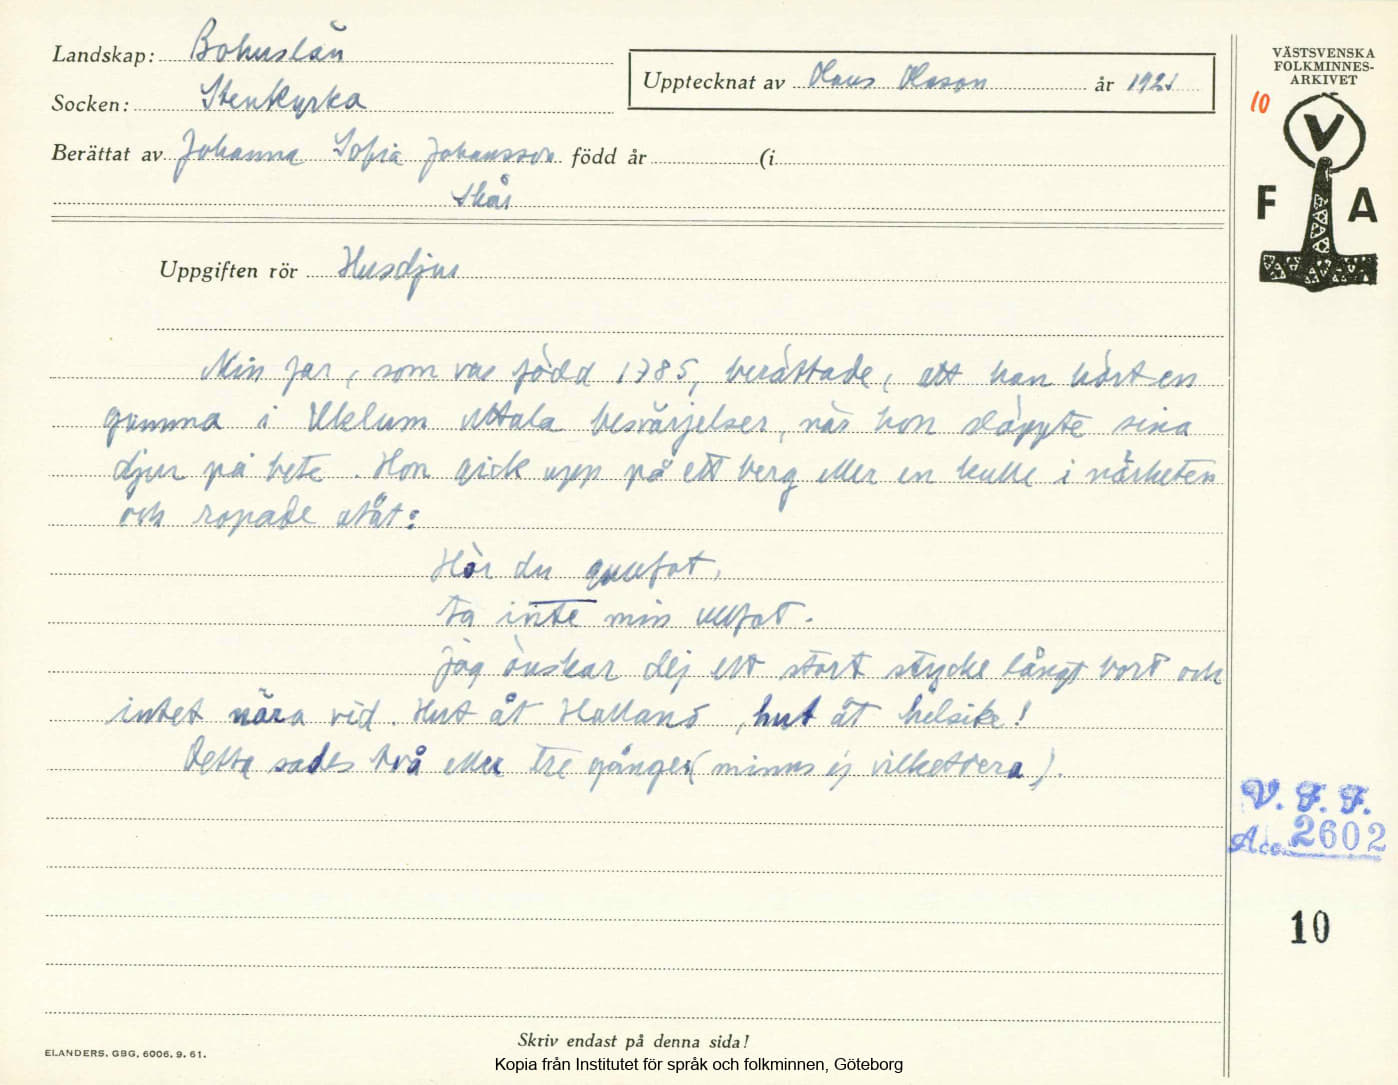 Landskap: Bohuslän
Socken: Stenkyrka
Upptecknat av Claus Olsson år 1921
Berättat av Johanna Sofia Johansson född år (i
Skår
Uppgiften rör Husdjur
Min far, som var född 1785, berättade, att han hört en
gumma i Uklum uttala besvärjelser, när hon släppte sina
djur på bete. Hon gick upp på ett berg eller en kulle i närheten
och ropade utåt:
Hör du gullfot,
ta inte min ullfot.
Jag önskar dej ett stort stycke långt bort och
intet nära vid. Hut åt Halland, hut åt helsike!
Detta sades två eller tre gånger (minns ej vilketdera).
VÄSTSVENSKA
FOLKMINNES-
ARKIVET
10
V
F A
V. F. F.
Acc. 2602
10
Skriv endast på denna sida!
ELANDERS. GBG. 6006. 9. 61.
Kopia från Institutet för språk och folkminnen, Göteborg